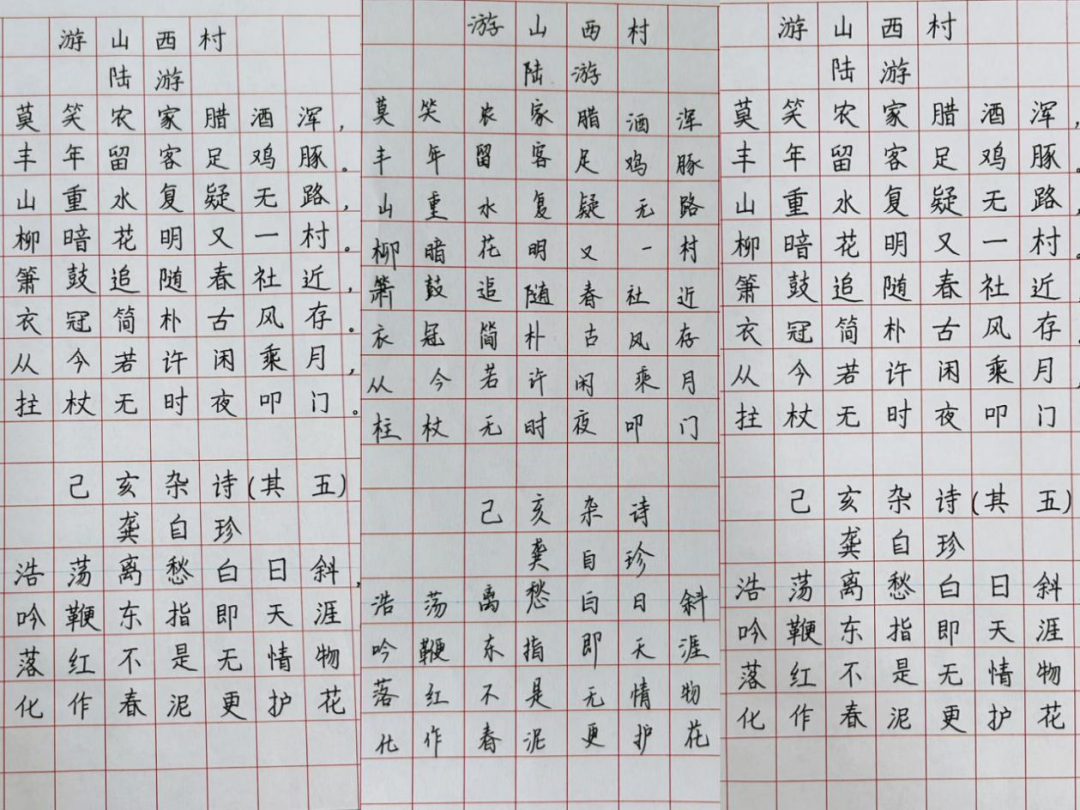 游山西村
陆游
莫笑农家腊酒浑，
丰年留客足鸡豚。
山重水复疑无路，
柳暗花明又一村。
箫鼓追随春社近，
衣冠简朴古风存。
从今若许闲乘月，
拄杖无时夜叩门。
己亥杂诗(其五)
龚自珍
浩荡离愁白日斜，
吟鞭东指即天涯
落红不是无情物
化作春泥更护花
游山西村
陆游
莫笑农家腊酒浑
丰年留客足鸡豚
山重水复疑无路
柳暗花明又一村
箫鼓追随春社近
衣冠简朴古风存
从今若许闲乘月
柱杖无时夜叩门
己亥杂诗
龚自珍
浩荡离愁白日斜
吟鞭东指即天涯
落红不是无情物
化作春泥更护花
游山西村
陆游
莫笑农家腊酒浑，
丰年留客足鸡豚。
山重水复疑无路，
柳暗花明又一村。
箫鼓追随春社近，
衣冠简朴古风存。
从今若许闲乘月，
拄杖无时夜叩门
己亥杂诗(其五)
龚自珍
浩荡离愁白日斜
吟鞭东指即天涯
落红不是无情物
化作春泥更护花